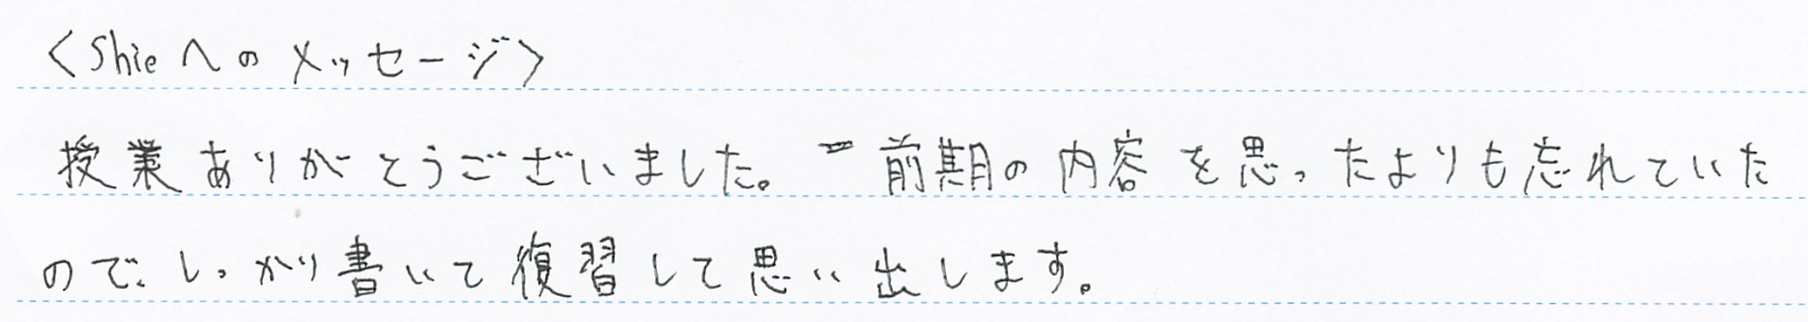 <Shieへのメッセージ>
授業ありがとうございました。前期の内容を思ったよりも忘れていた
ので、しっかり書いて復習して思い出します。